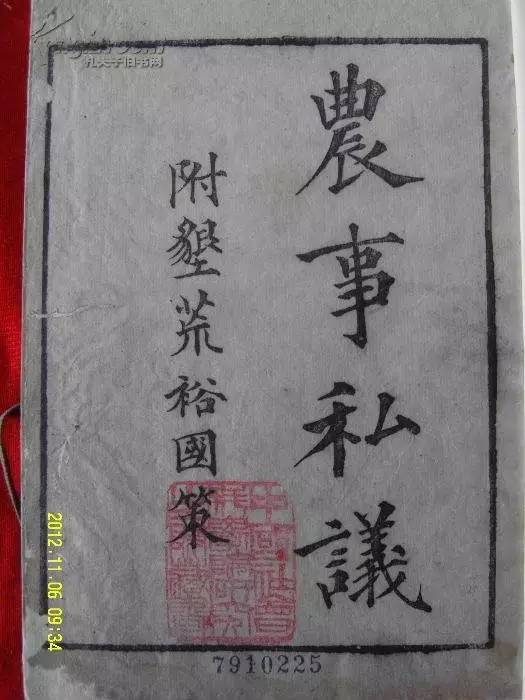 農事私議
附墾荒裕國策
7910225
2012.11.06 09:34
孔夫子旧书网